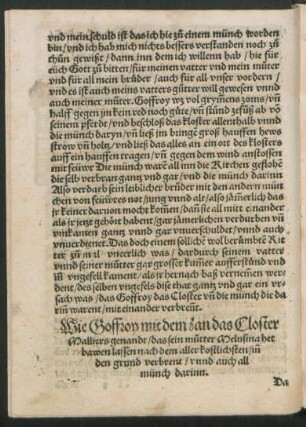 vnd mein schuld ist das ich hie zů einem münch worden
bin / vnd ich hab mich nichts bessers verstanden noch zů
thůn gewißt / dann inn dem ich willenn hab / hie für
eüch Gott zů bitten / für meinen vatter vnd mein můter
vnd für all mein brüder / auch für all vnser vordern /
vnd es ist auch meins vatters gütter will gewesen vnnd
auch meiner můter. Goffroy wz vol grymmens zorns / vñ
halff gegen jm kein red noch güte / vñ stůnd zestund ab võ
seinem pferdt / vnd beschloß das kloster allenthalb vnnd
die münch daryn / vñ ließ jm bringẽ groß hauffen hews
strow vñ holtz / vnd ließ das alles an ein ort des klosters
auff ein hauffen tragen / vñ gegen dem wind anstossen
mit feüwr Die münch warẽ all inn die Kirchen geflohẽ
die selb verbran gantz vnd gar / vnd die münch darinn
Also verdarb sein leiblicher brüder mit den andern mün
chen von feüwres not / jung vnnd alt / also jämerlich das
jr keiner darvon mocht komẽ / dañ sie all mit einander
als jr jetzt gehört habent / gar jämerlichen verdurben vñ
verbrannen gantz vnnd gar vnuerschuldet / vnnd auch
vnuerdienet. Das doch einem sollichẽ wol berümbtẽ Rit
ter zů vil vneerlich was / dardurch seinem vatter
vnnd seiner můter gar grosser kumer aufferstůnd vnd
inn vngefell kament / als jr hernach baß vernemen wer=
dent / des selben vngefels dise that gantz vnd gar ein vr=
sach was / das Goffroy das Closter vñ die münch die da
rinn warent / mit einander verbrent.
Wie Goffroy mit dem Zan das Closter
Malliers genandt / das sein můter Melusina het
bawen lassen nach dem aller kostlichsten / in
den grund verbrent / vnnd auch all
münch darinn.
Da